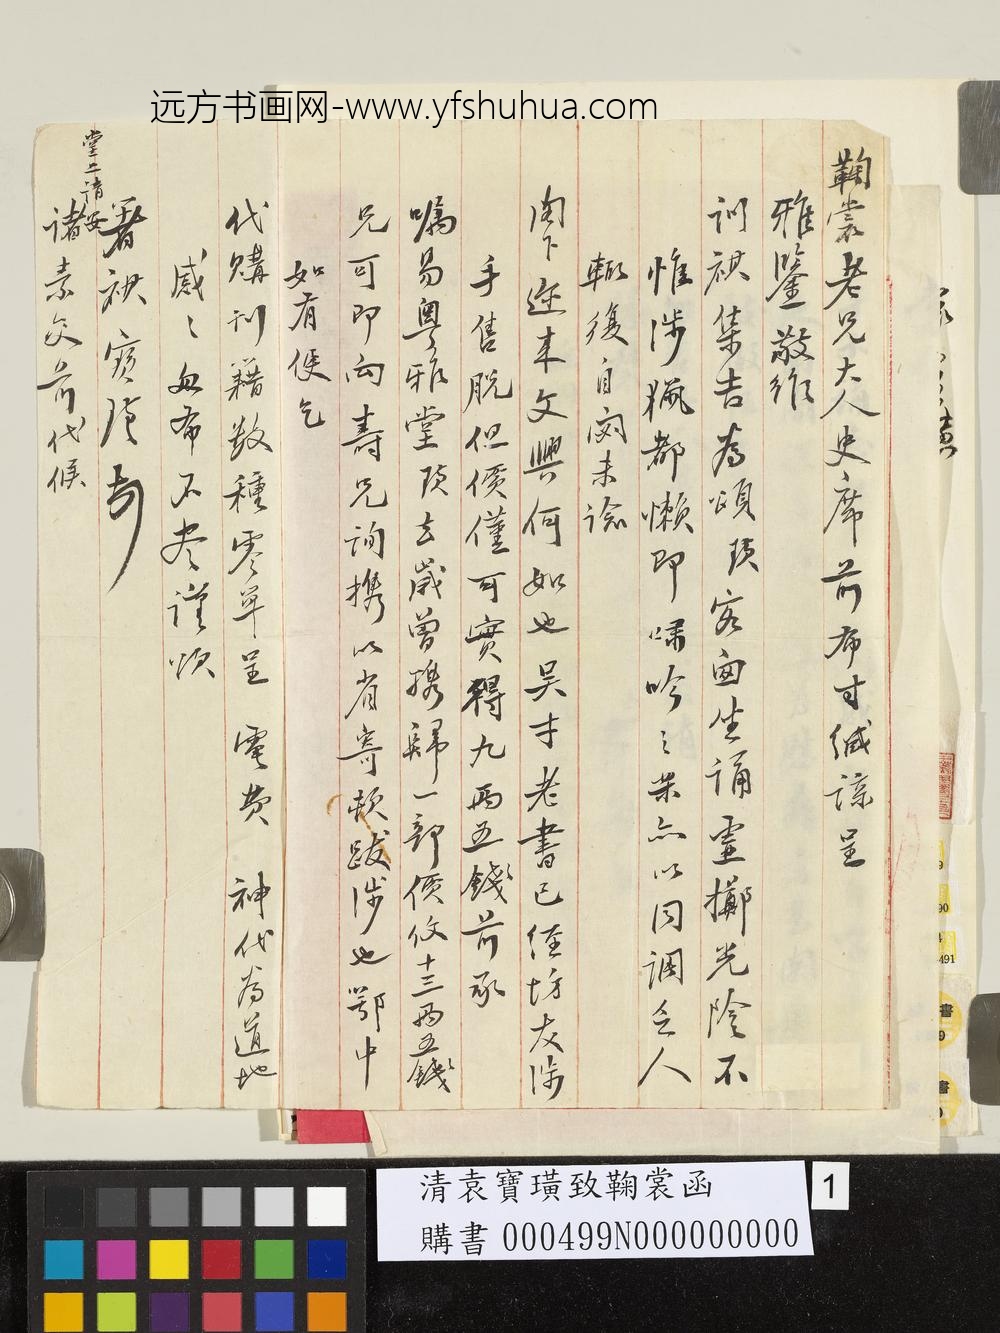 远方书画网-www.yfshuhua.com
鞠裳老兄大人史席前布寸緘諒呈
雅鑒敬維
訓祺集吉為頌璜客囪坐誦虛擲光陰不
惟涉獵都懶即嘯吟之業亦以同調乏人
輒復自閟未諗
閣下邇來文興何如也吳才老書已經坊友涉
手售脫但價僅可實得九兩五錢前承
囑易粵雅堂璜去歲曾携歸一部價佼十三兩五錢
兄可即向壽兄詢携以省寄頓跋涉也鄂中
如有便乞
代購刊籍數種零單呈電費神代為道地
感〻匆布不盡謹頌
著祺寶璜頓
堂上請安
諸素交前代候
清袁寶璜致鞠裳函
購書 000499N000000000
1